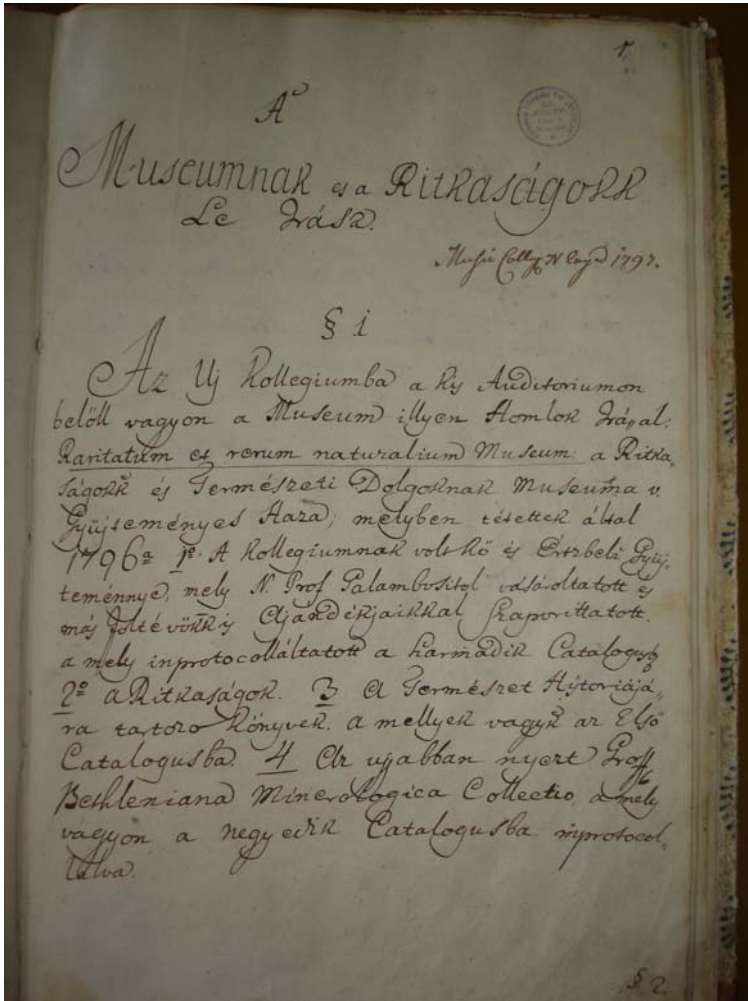 1.
A'
Museumnak es a Ritkaságokk
Le Irása.
Musei Colleg N Enyed 1797.
§ 1
Az Uj Kollegiumba a kis Auditoriumon
belöll vagyon a Museum illyen Homlok Irással:
Raritatum et rerum naturalium Museum: a Ritka„
ságokk és Természeti Dolgoknak Museuma v.
Gyüjteményes Haza; melyben tétettek által
1796ª 1º. A Kollegiumnak volt Kö és Értzbeli Gyüj„
teménnye, mely N. Prof vásároltatott és
más Joltévökk is Ajándékjaikkal szaporittatott.
a mely inprotocolláltatott a harmadik Catalogusb
2º a Ritkaságok. 3 A Természet Historiájá„
ra tartozo Könyvek. a mellyek vagyk az Elsö
Catalogusba. 4 Az ujabban nyert Groff
Bethleniana Minerologica Collectio, a mely
vagyon a negyedik Catalogusba inprotocol„
lálva.
§ 2